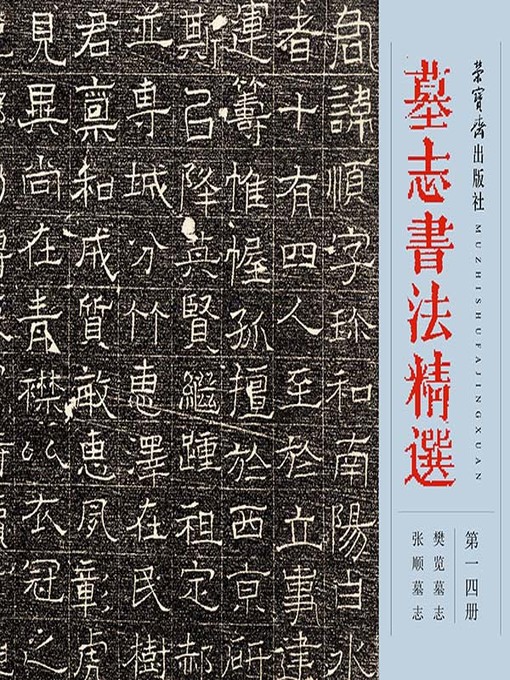 榮寶齋出版社
MUZHISHUFAJINGXUAN
墓志書法精選
第一四册
樊览墓志
张顺墓志
君諱順字珎和南陽白水
者十有四人至於立事建
運籌惟幄孤擅於西京研
斯已降英賢繼踵祖定郝
並專城分竹惠澤在民樹
君稟和成質敏惠夙彰虎
見異尚在青襟以衣冠之